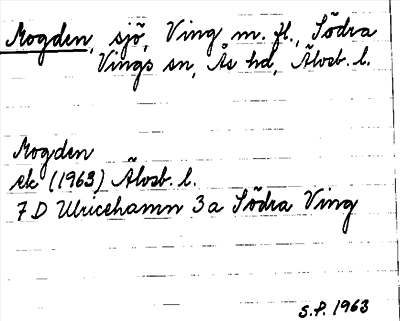 Mogden, sjö, Ving m. fl., Södra
Vings sn, Ås hd, Älvsb. l.
Mogden
ek (1963) Älvsb. l.
7 D Ulricehamn 3 a Södra Ving
S.P. 1963